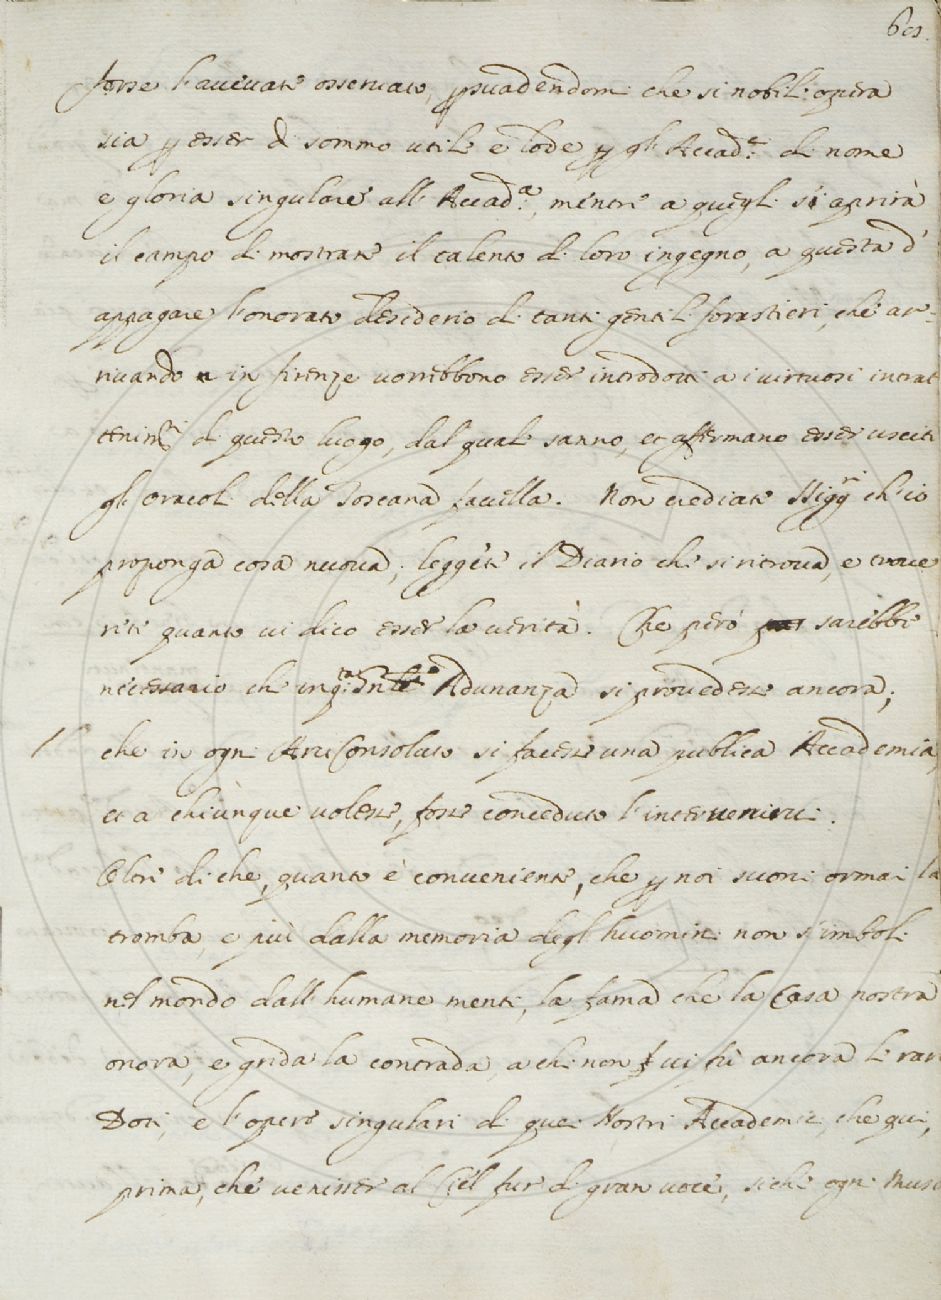 609.
forse l'avevate osservato, p suadendomi che si nobil' opera
sia p esser di sommo utile e lode p gl' Accad.ci di nome
e gloria singulare all' Accad.a, mentre a quegli si aprirà
il campo di mostrare il talento di loro ingegno, a questa d'
appagare l'onorato desiderio di tanti gentili forastieri, che ar-
rivando in firenze vorrebbono esser introdotti a i virtuosi intrat
tenim.ti di questo luogo, dal quale sanno, et affermano esser usciti
gli oracoli della Toscana favella. Non crediate SSig.ri ch'io
proponga cosa nuova, leggete il Diario che si ritrova, e trove
rete quanto vi dico esser la verità. Che però sarebbe
necessario che in q.ta Adunanza si provedesse ancora,
che in ogni ArciConsolato si facesse una publica Accademia,
et a chiunque volesse, fosse conceduto l'intervenirvi.
Oltre di che, quanto è conveniente, che p noi suoni ormai la
tromba, e più dalla memoria degl' huomini non s'imboli
nel mondo dall' humane menti, la fama che la Casa nostra
onora, e grida la contrada, a chi non vi fù ancora le rare
Doti, e l'opere singulari di quei Nostri Accademici, che qui,
prima, che venisser al Ciel fur di gran voce, sichè ogni Musa